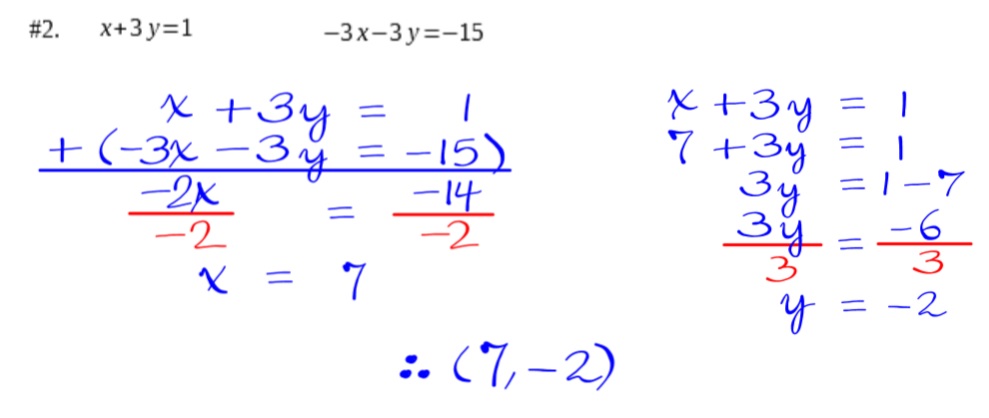 #2. x+3y=1 −3x−3y=−15
x + 3y = 1
+ (-3x - 3y = -15)
-2x = -14
-2 -2
x = 7
x + 3y = 1
7 + 3y = 1
3y = 1 - 7
3y = -6
3 3
y = -2
∴ (7, -2)